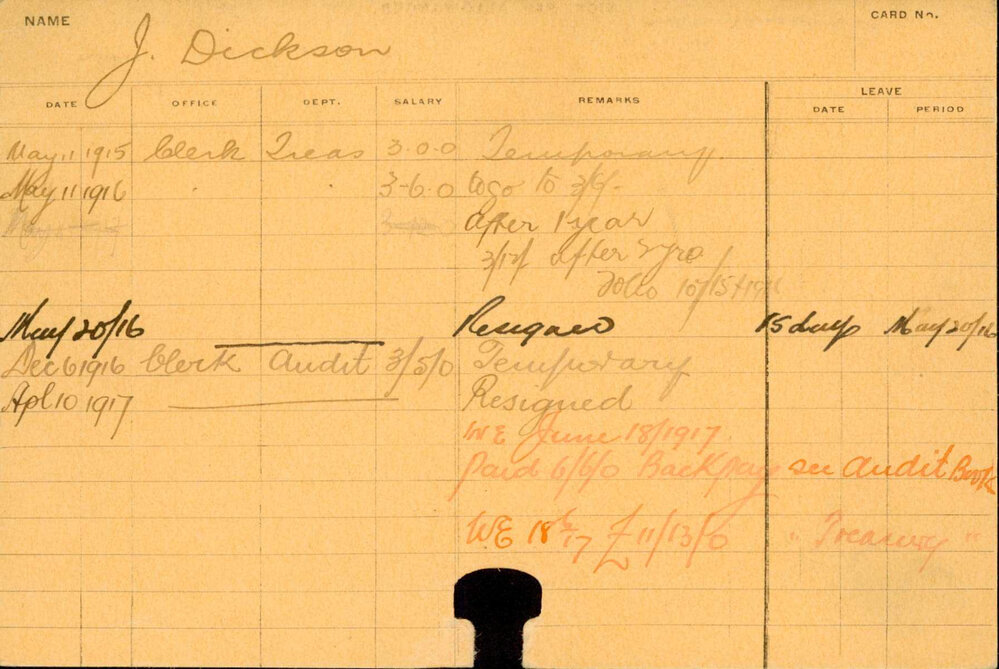 NAME
CARD No.
J. Dickson
DATE OFFICE DEPT. SALARY REMARKS LEAVE
DATE PERIOD
May 11 1915 Clerk Treas 3.0.0 Temporary.
May 11 1916 3-6.0 to 3/9/-
after 1 year
3/12/ after 2 yrs
May 20/16 Resigned 15 days May 20/16
Dec 6 1916 Clerk Audit 3/5/0 Temporary
Apl 10 1917 Resigned
WE June 18/1917
Paid 6/6/0 Backpay see Audit Book
WE 18 6/17 £11/13/0 " Treasury "